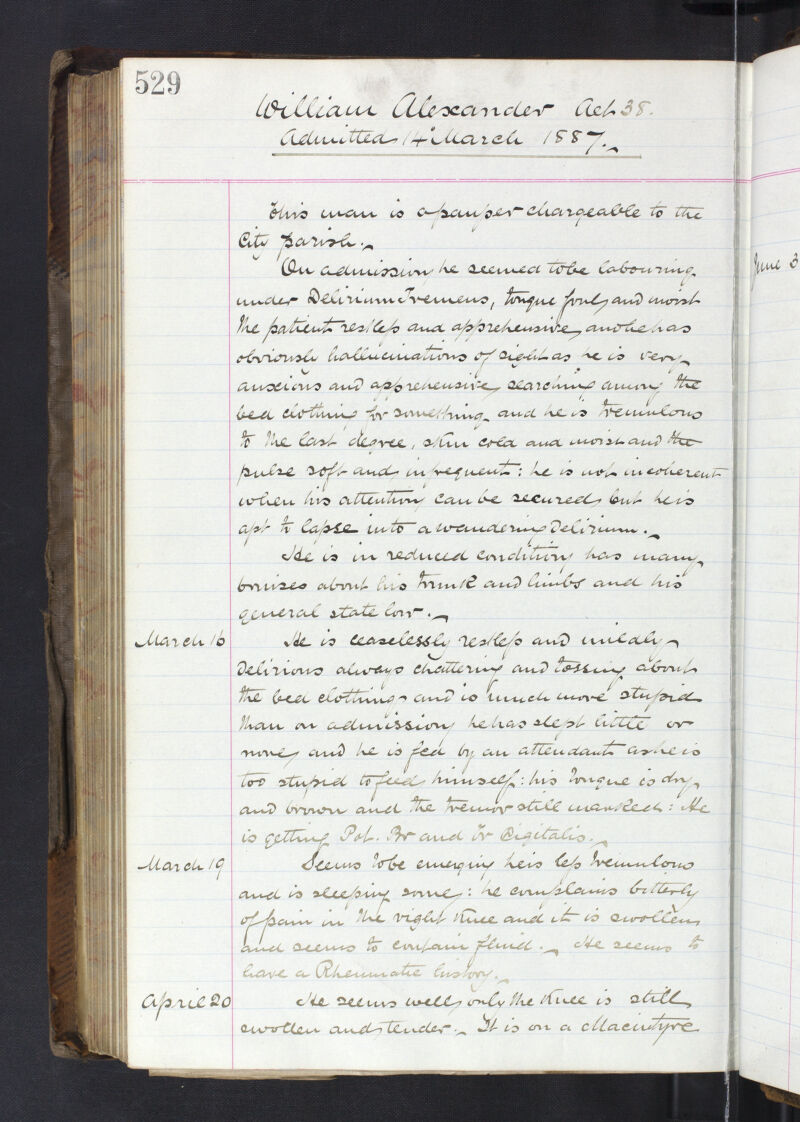 529
William Alexander Aet 38.
Admitted 14th March 1887.
This man is a pauper chargeable to the
City parish.
On admission he seemed to be labouring
under Delirium Tremens, tongue foul and moist
the patient restless and apprehensive, and he has
obviously hallucinations of sight as he is very
anxious and apprehensive, searching among the
bed clothing for something and he is tremulous
to the last degree, skin cold and moist and the
pulse soft and infrequent: he is not incoherent
when his attention can be secured, but he is
apt to lapse into a wandering Delirium.
He is in reduced condition, has many
bruises about his trunk and limbs and his
general state low.
March 16 He is ceaselessly restless and mildly
delirious always chattering and tossing about
the bed clothing and is much more stupid
than on admission, he has slept little or
none, and he is fed by an attendant as he is
too stupid to feed himself: his tongue is dry
and brown and the tremor still marked: He
is getting Pot. Br and Tr Digitalis.
March 19 Seems to be emerging he is less tremulous
and is sleeping some: he complains bitterly
of pain in the right Knee and it is swollen
and seems to contain fluid. He seems to
have a Rheumatic history.
April 20 He seems well, only the Knee is still
swollen and tender. It is on a Macintyre
June 3